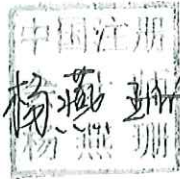 中国注册
杨燕珊
杨燕珊